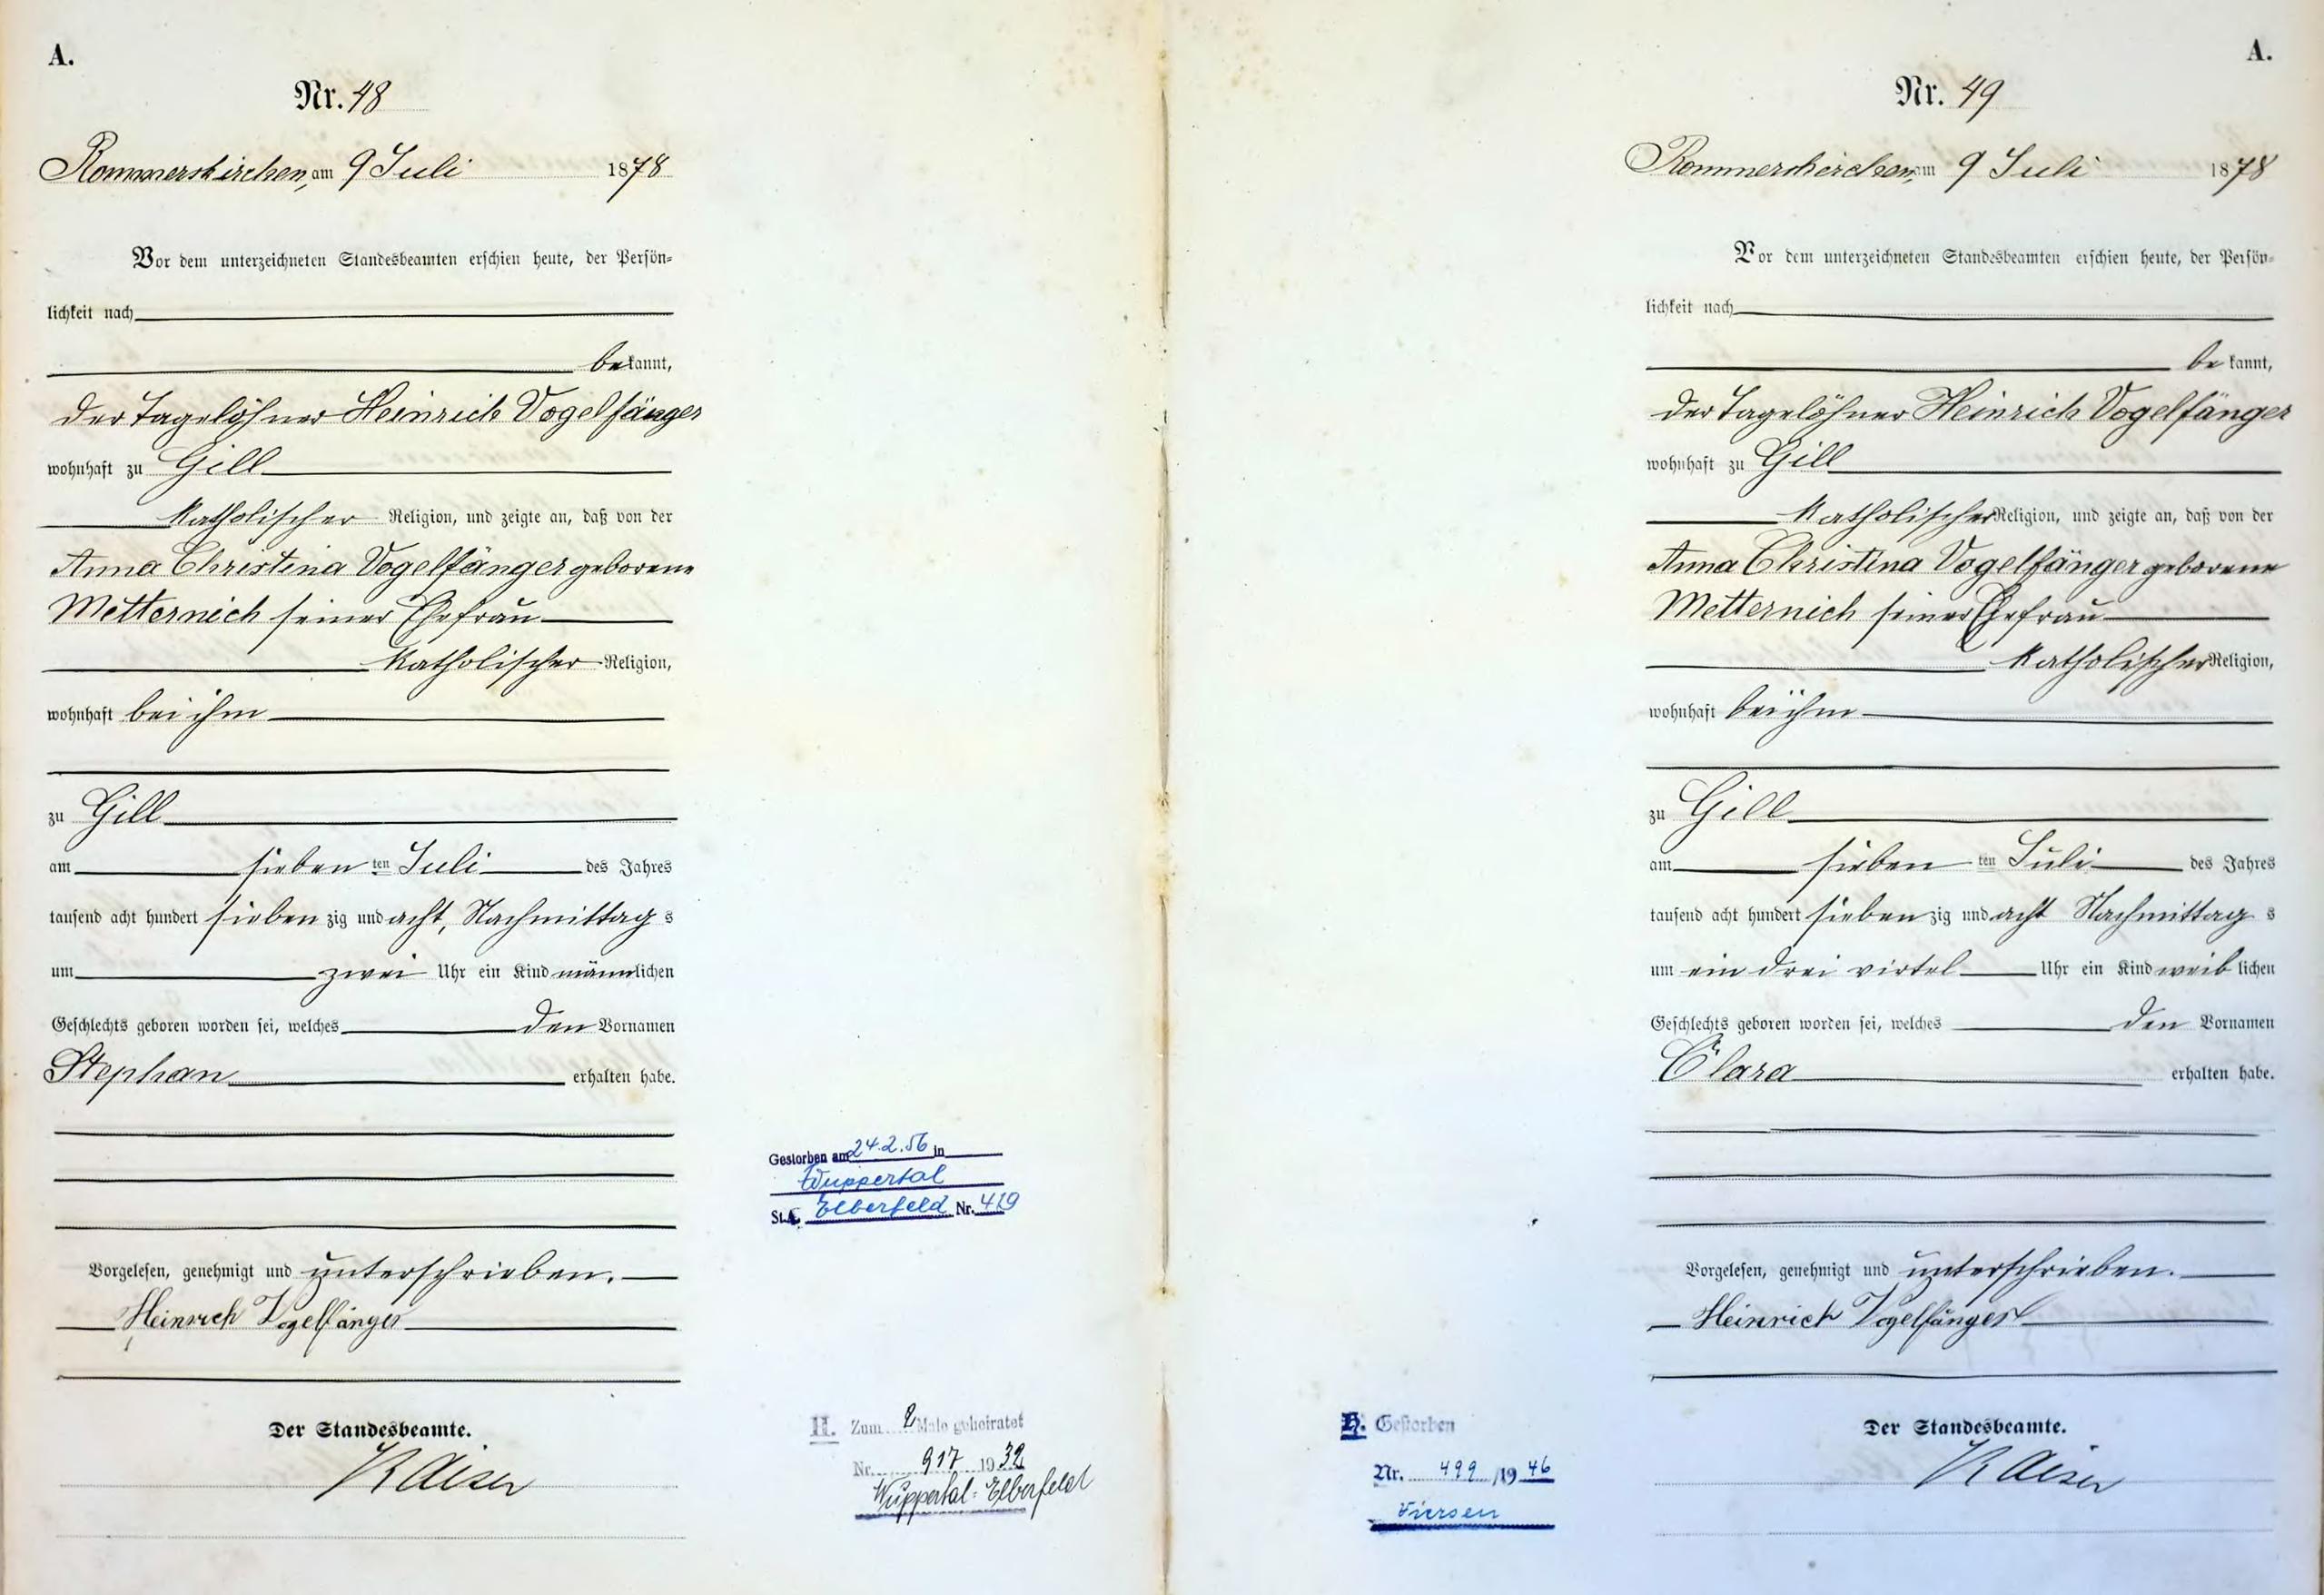 A.
Nr. 48
Rommerskirchen, am 9 Juli 1878
Vor dem unterzeichneten Standesbeamten erschien heute, der Persön-
lichkeit nach
bekannt,
der Tagelöhner Heinrich Vogelfänger
wohnhaft zu Gill
katholischer Religion, und zeigte an, daß von der
Anna Christina Vogelfänger geborene
Metternich seiner Ehefrau
katholischer Religion,
wohnhaft bei ihm
zu Gill
am sieben ten Juli des Jahres
tausend acht hundert sieben zig und acht, Nachmittag s
um zwei Uhr ein Kind männlichen
Geschlechts geboren worden sei, welches den Vornamen
Stephan erhalten habe.
Vorgelesen, genehmigt und unterschrieben.
Heinrich Vogelfänger
Der Standesbeamte.
Kaiser
Gestorben am 24.2.56 in
Wuppertal
St.A. Elberfeld Nr. 419
H. Zum 2 Male geheiratet
Nr. 917 1932
Wuppertal-Elberfeld
A.
Nr. 49
Rommerskirchen, am 9 Juli 1878
Vor dem unterzeichneten Standesbeamten erschien heute, der Persön-
lichkeit nach
be kannt,
der Tagelöhner Heinrich Vogelfänger
wohnhaft zu Gill
katholischer Religion, und zeigte an, daß von der
Anna Christina Vogelfänger geborene
Metternich seiner Ehefrau
katholischer Religion,
wohnhaft bei ihm
zu Gill
am sieben ten Juli des Jahres
tausend acht hundert sieben zig und acht Nachmittag s
um ein drei virtel Uhr ein Kind weib lichen
Geschlechts geboren worden sei, welches den Vornamen
Clara erhalten habe.
Vorgelesen, genehmigt und unterschrieben.
Heinrich Vogelfänger
Der Standesbeamte.
Kaiser
H. Gestorben
Nr. 499 /1946
Viersen